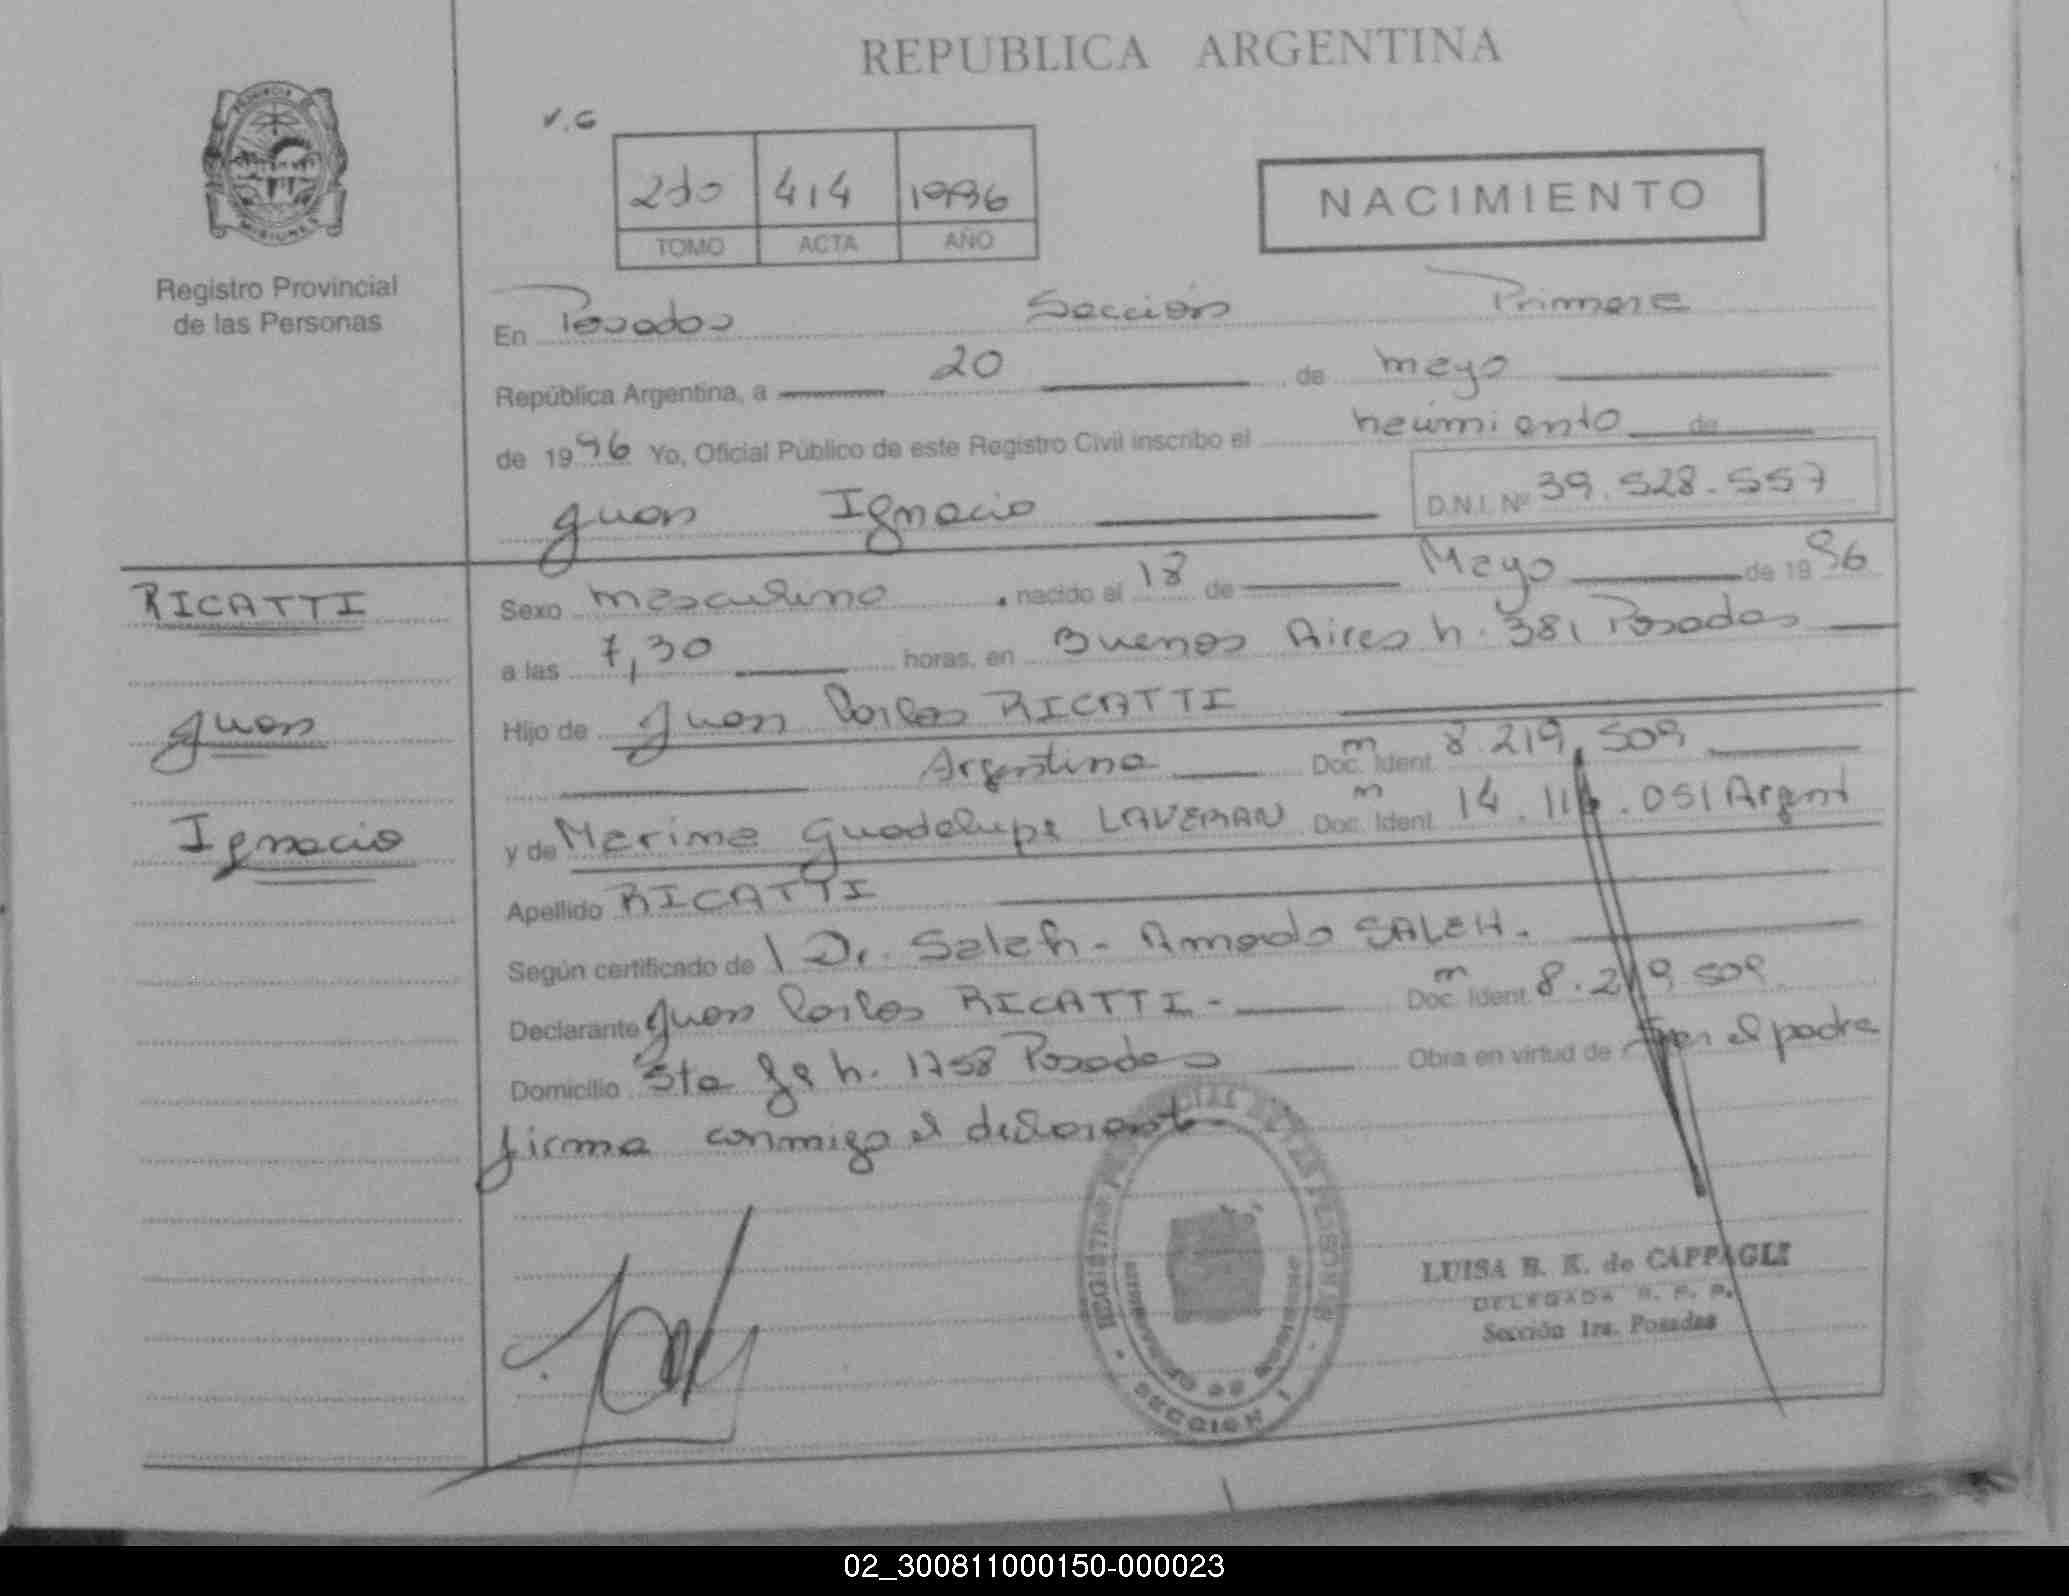 REPUBLICA ARGENTINA
PROVINCIA DE
MISIONES
Registro Provincial
de las Personas
V.G
2do 414 1996
TOMO ACTA AÑO
NACIMIENTO
En Posadas Sección Primera
República Argentina, a 20 de mayo
de 1996 Yo, Oficial Público de este Registro Civil inscribo el nacimiento de
Juan Ignacio D.N.I. Nº 39.528.557
RICATTI
Juan
Ignacio
Sexo masculino . nacido el 18 de Mayo de 1996
a las 7,30 horas, en Buenos Aires n. 381 Posadas
Hijo de Juan Carlos RICATTI
Argentina Doc. Ident. m 8.219.509
y de Marina Guadalupe Doc. Ident. m 14. .051 Argent
Apellido RICATTI
Según certificado de Dr. Saleh - Amado SALEH.
Declarante Juan Carlos RICATTI - Doc. Ident. m 8.219.509
Domicilio Sta Fe n. 1758 Posadas Obra en virtud de ser el padre
firma conmigo el declarante
LUISA B. K. de CAPPAGLI
DELEGADA R. P. P.
Sección 1ra. Posadas
SECCION 1
02_300811000150-000023